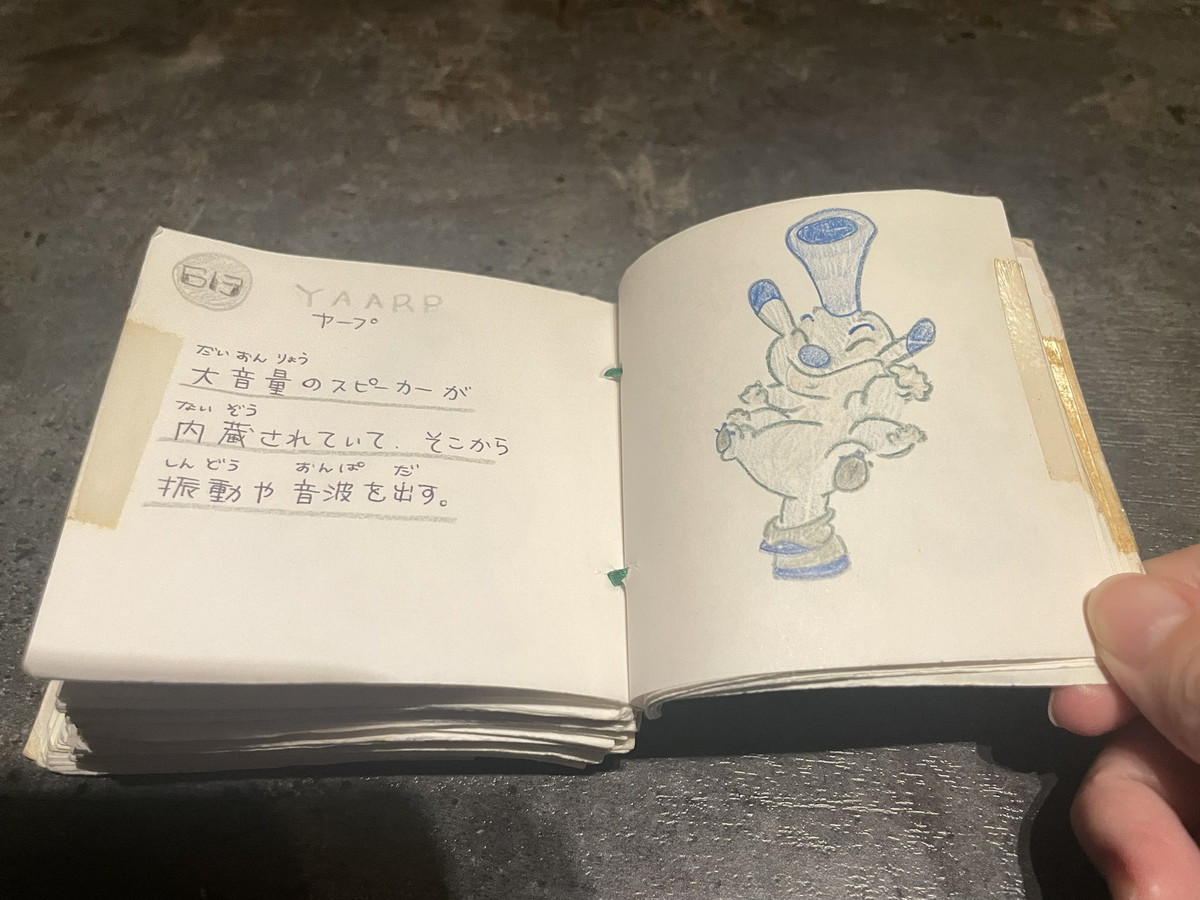 613
YAARP
ヤープ
だい おん りょう
大音量のスピーカーが
ない ぞう
内蔵されていて、そこから
しん どう おん ぱ だ
振動や音波を出す。